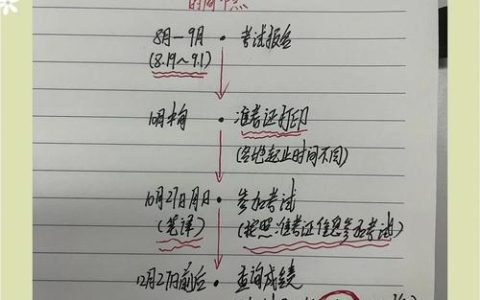 的时间点
8月-9月 · 考试报名
(8.19~9.1)
10月中旬 · 准考证打印
(各地起止时间不同)
10月27日周日 · 参加考试
(笔译) (按照准考证信息参加考试)
12月27日前后 · 查询成绩